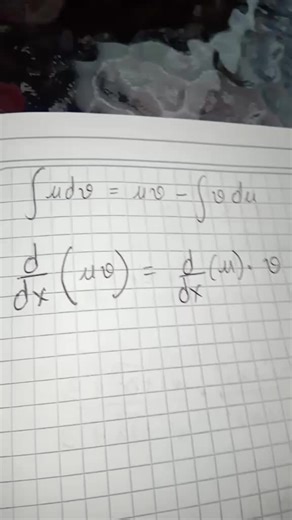 ∫ u dv = uv - ∫ v du
d/dx (uv) = d/dx (u) · v